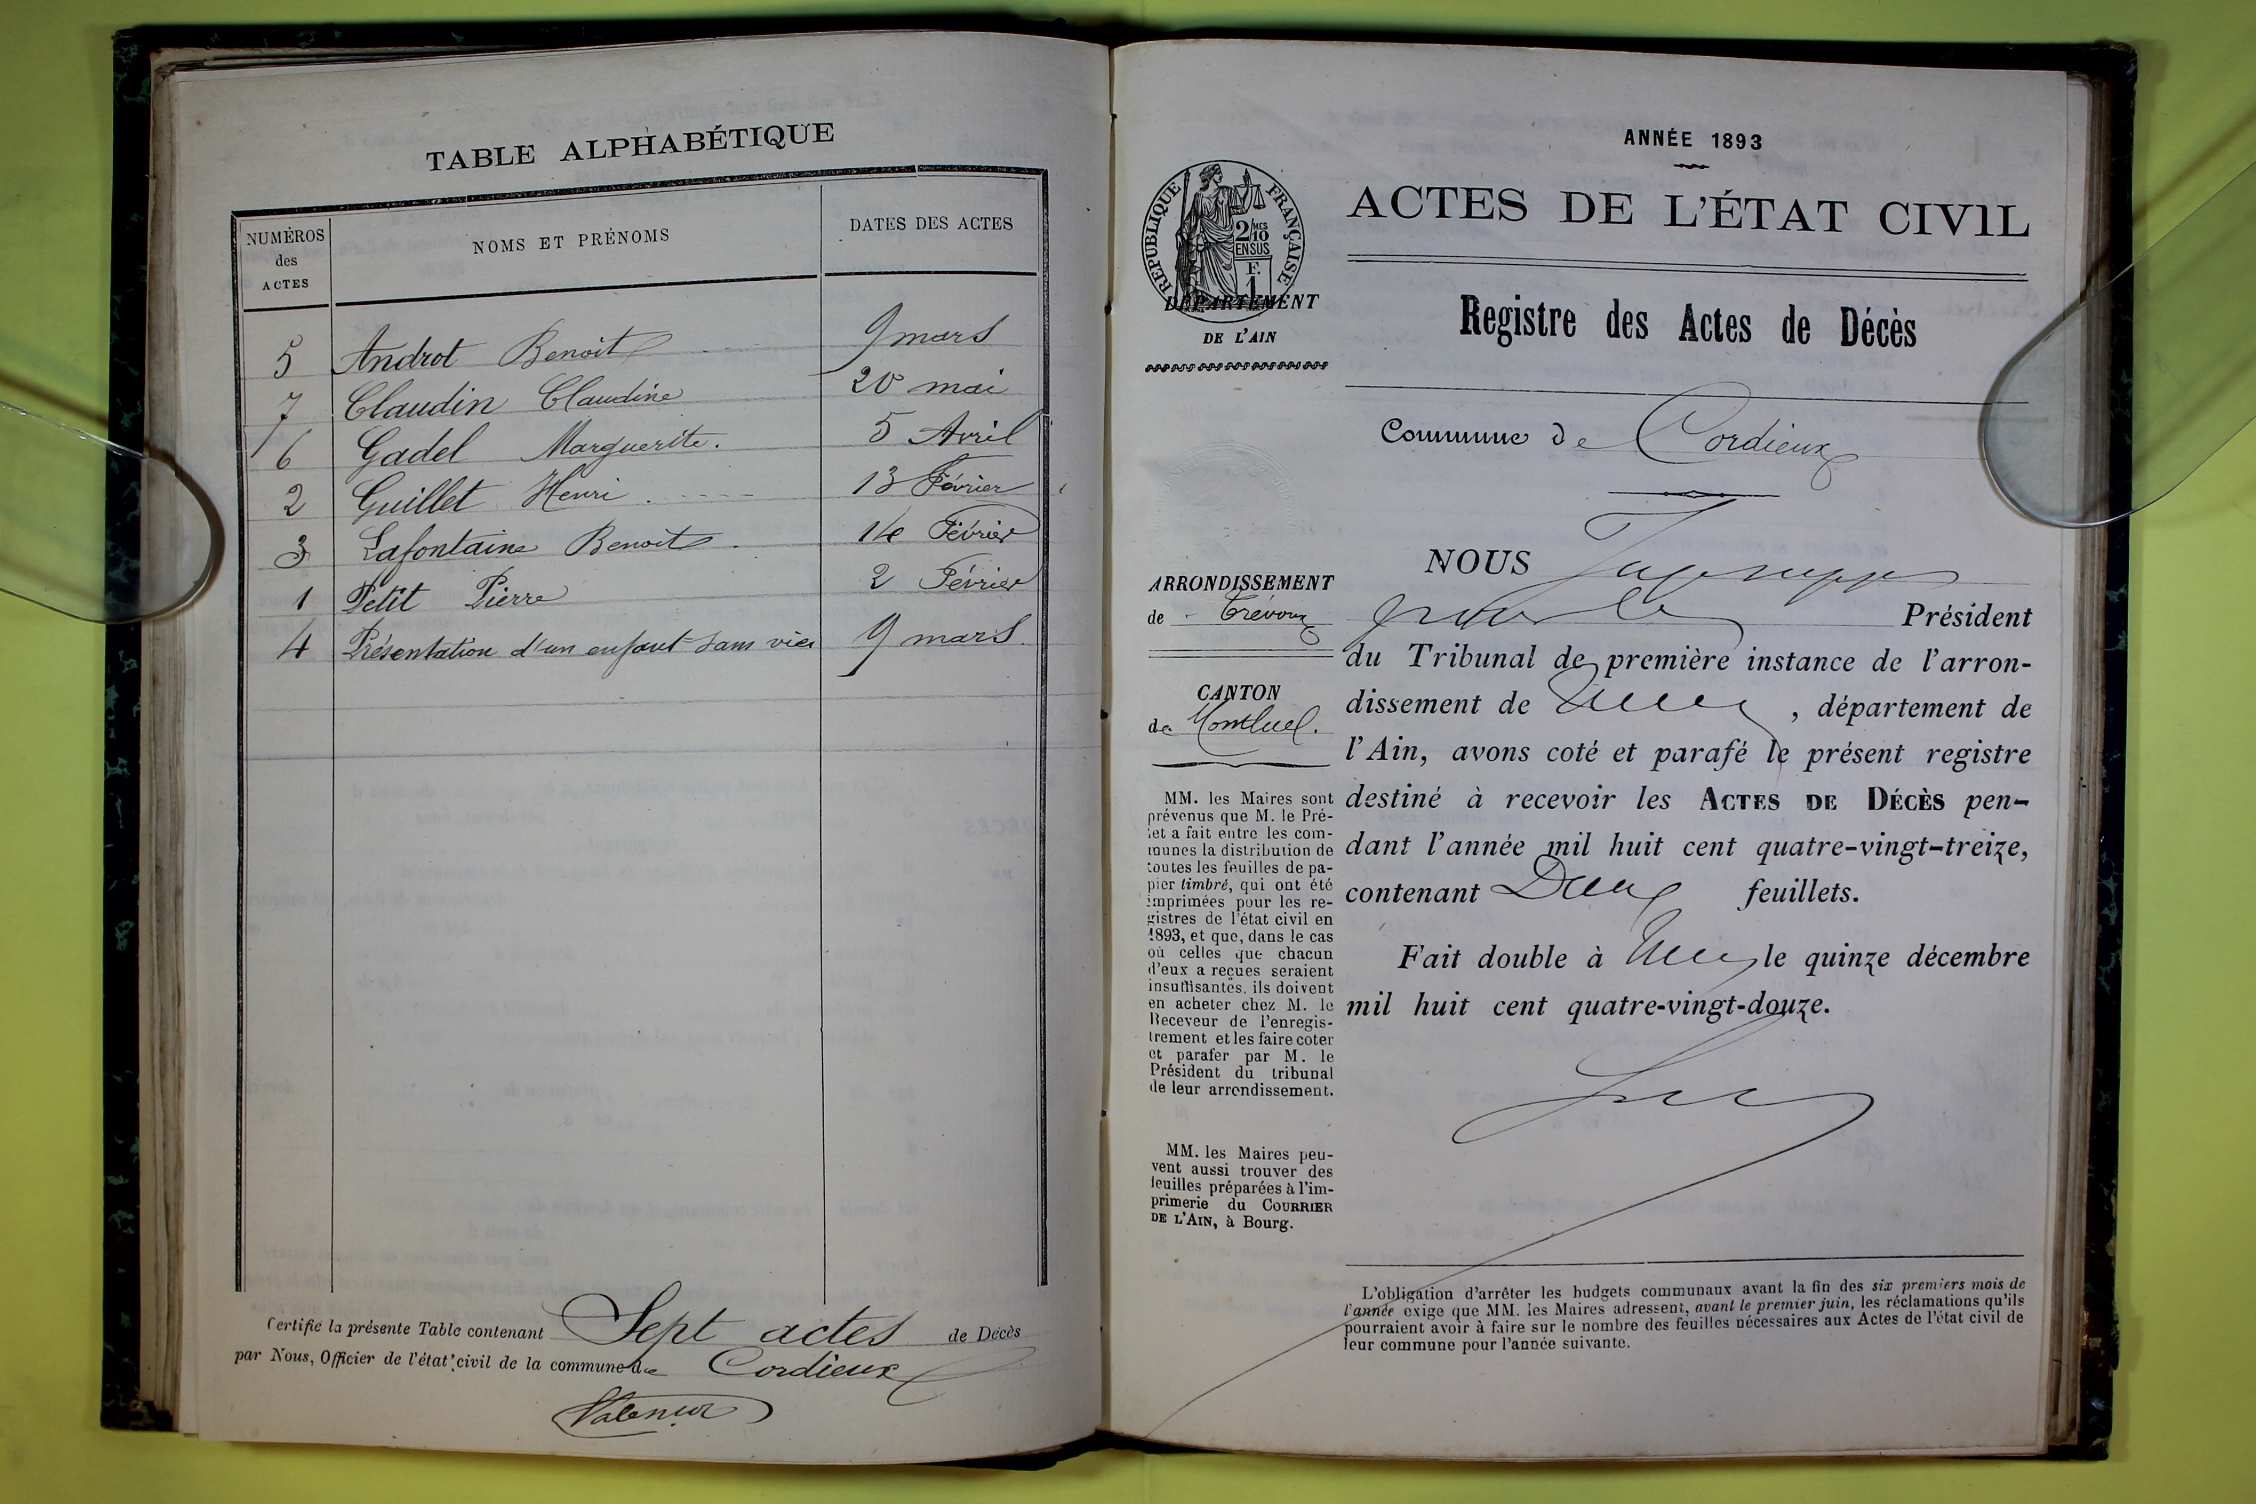 TABLE ALPHABÉTIQUE
NUMÉROS des ACTES
NOMS ET PRÉNOMS
DATES DES ACTES
5 Androt Benoit 9 mars
7 Claudin Claudine 20 mai
6 Gadel Marguerite. 5 Avril
2 Guillet Henri 13 Février
3 Lafontaine Benoit 14 Février
1 Petit Pierre 2 Février
4 Présentation d'un enfant sans vie 9 mars
Certifié la présente Table contenant Sept actes de Décès
par Nous, Officier de l'état civil de la commune de Cordieux
ANNÉE 1893
RÉPUBLIQUE FRANÇAISE
2/10 MES
EN SUS
F. 1
DÉPARTEMENT
DE L'AIN
ARRONDISSEMENT
de Trévoux
CANTON
de Montluel.
MM. les Maires sont
prévenus que M. le Pré-
fet a fait entre les com-
munes la distribution de
toutes les feuilles de pa-
pier timbré, qui ont été
imprimées pour les re-
gistres de l'état civil en
1893, et que, dans le cas
où celles que chacun
d'eux a reçues seraient
insuffisantes, ils doivent
en acheter chez M. le
Receveur de l'enregis-
trement et les faire coter
et parafer par M. le
Président du tribunal
de leur arrondissement.
MM. les Maires peu-
vent aussi trouver des
feuilles préparées à l'im-
primerie du COURRIER
DE L'AIN, à Bourg.
ACTES DE L'ÉTAT CIVIL
Registre des Actes de Décès
Commune de Cordieux
NOUS
Président
du Tribunal de première instance de l'arron-
dissement de , département de
l'Ain, avons coté et parafé le présent registre
destiné à recevoir les ACTES DE DÉCÈS pen-
dant l'année mil huit cent quatre-vingt-treize,
contenant Deux feuillets.
Fait double à le quinze décembre
mil huit cent quatre-vingt-douze.
L'obligation d'arrêter les budgets communaux avant la fin des six premiers mois de
l'année exige que MM. les Maires adressent, avant le premier juin, les réclamations qu'ils
pourraient avoir à faire sur le nombre des feuilles nécessaires aux Actes de l'état civil de
leur commune pour l'année suivante.